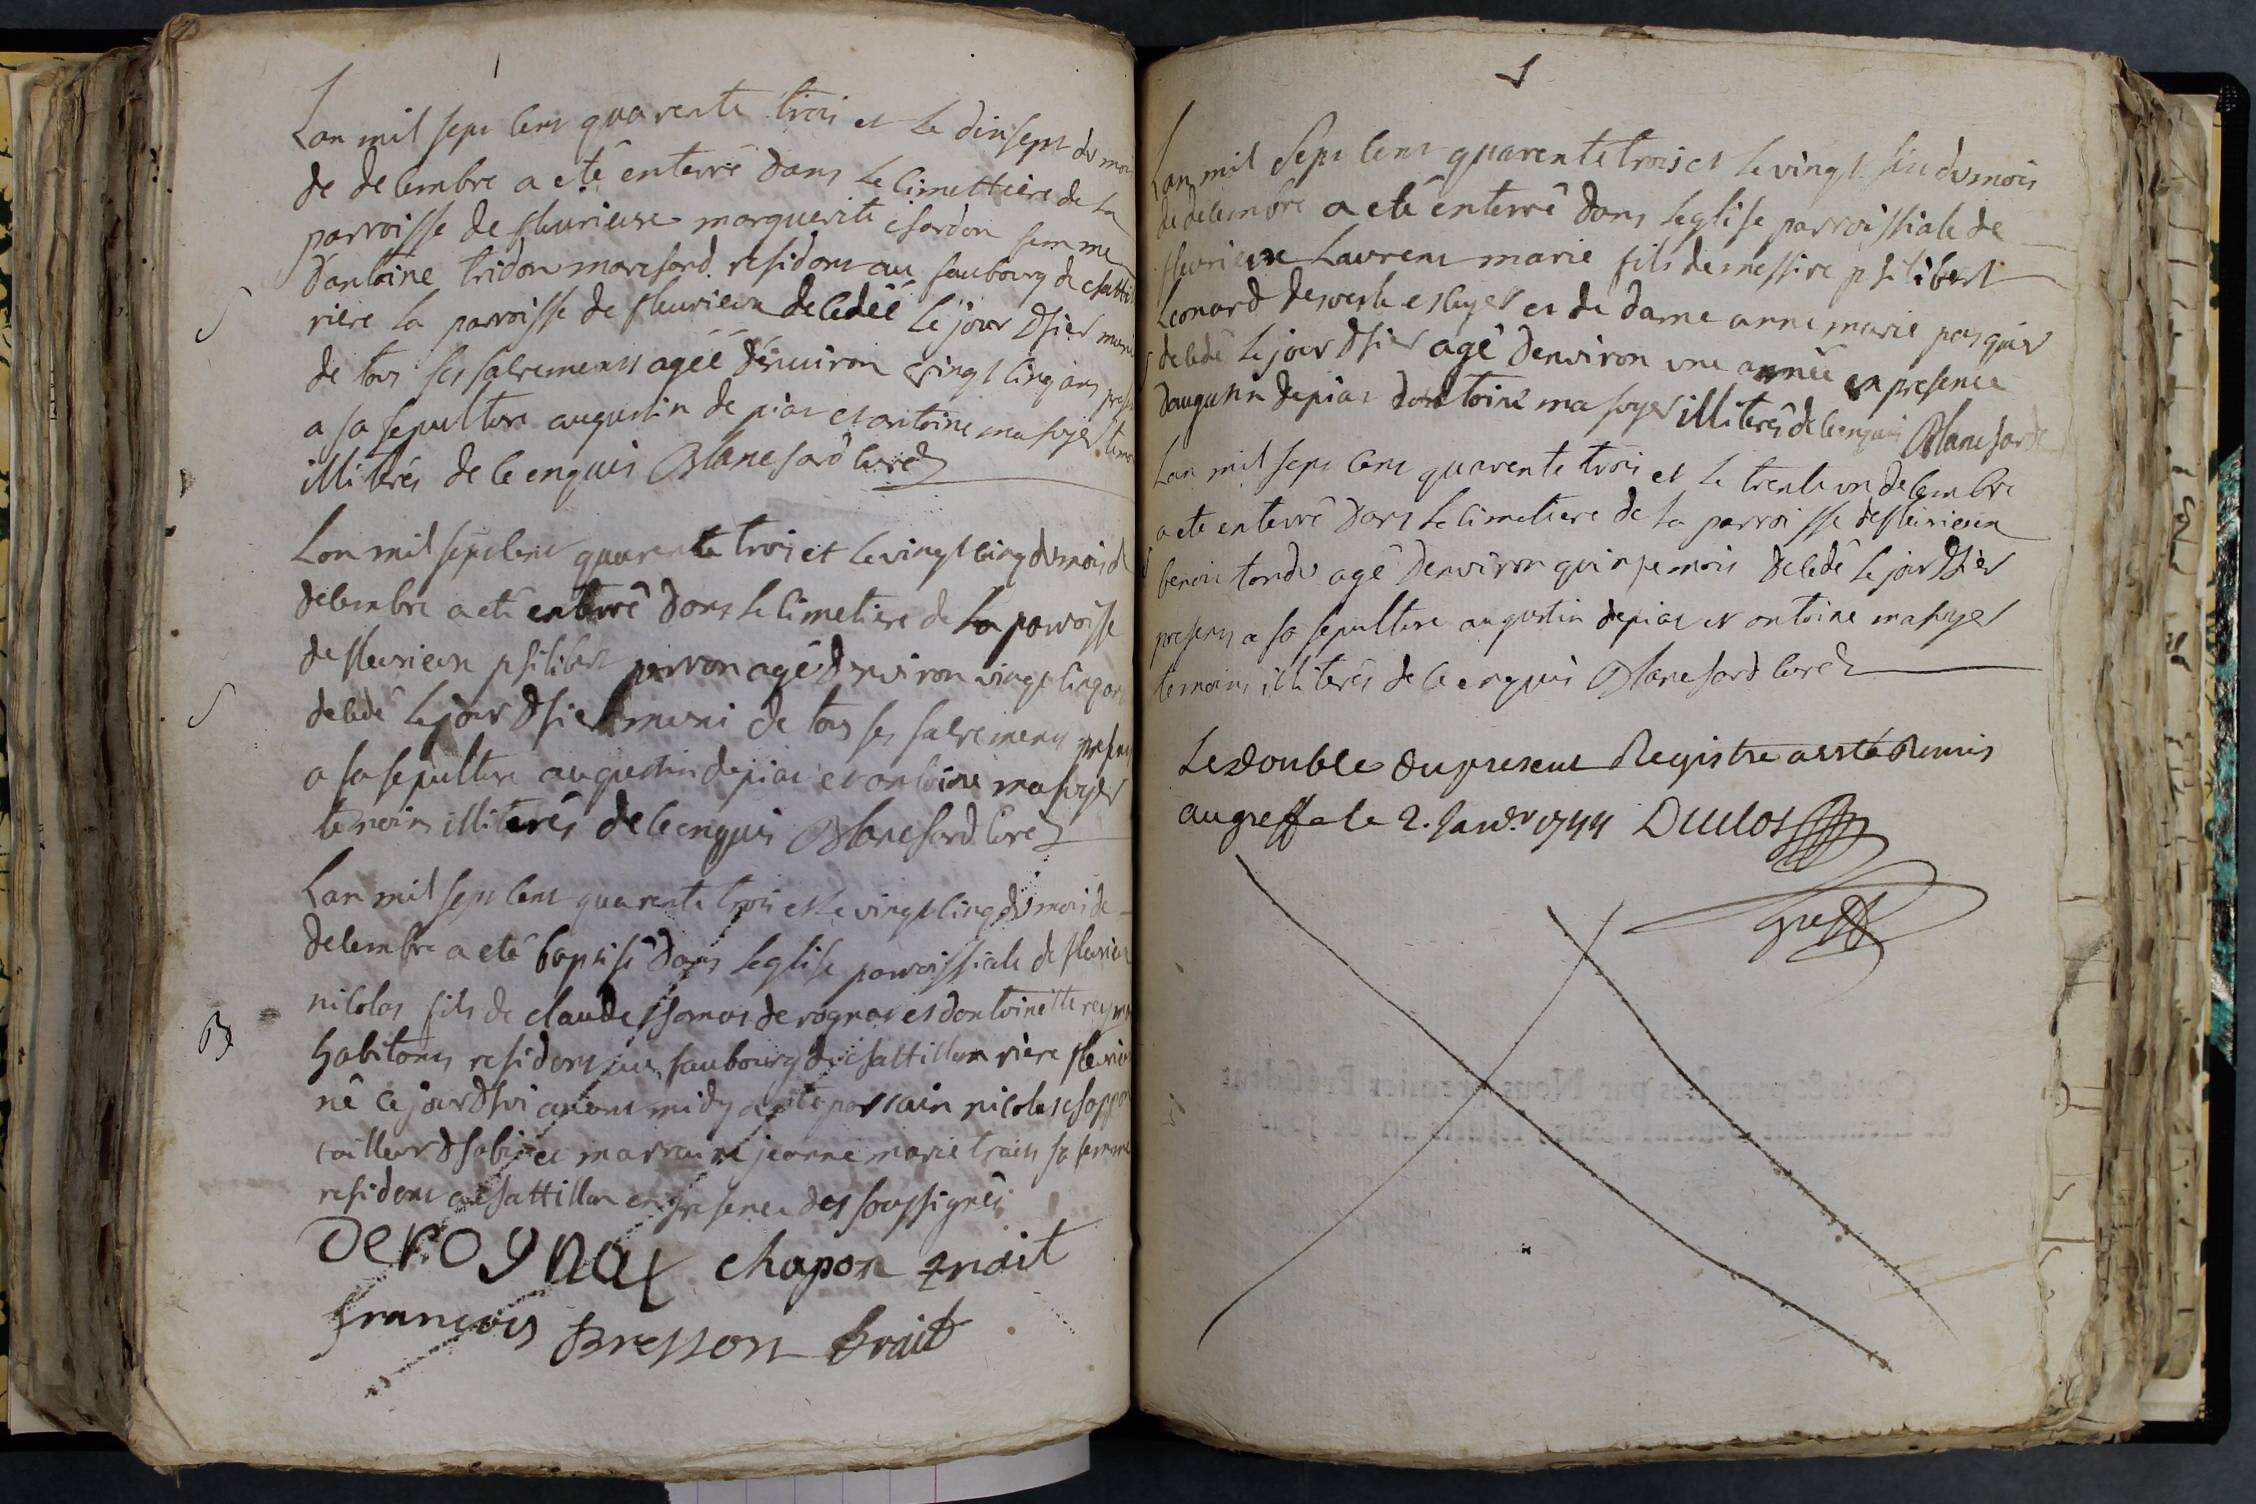 Lan mil sept cent quarente trois et le dinsept du mois
de decembre a eté enterré dans le cimettiere de la
parroisse de fleurieux marguerite chardon femme
dantoine tridon marchand residans au faubourg de chatti
riere la parroisse de fleurieux decedéé le jour dhier muni
de tous ses sacrements agéé denuiron vingt cinq ans presen
a sa sepulture augustin depias et antoine masuyer temo
illiterés de ce enquis Blanchard curé
Lan mil sept cent quarente trois et le vingt cinq du mois de
decembre a eté enterré dans le cimetiere de la parroisse
de fleurieux philibert perron agé denviron vingt cinq ans
decedé le jour dhier muni de tous ses sacrements presens
a sa sepulture augustin depias et antoine masuyer
temoins illiterés de ce enquis Blanchard curé
Lan mil sept cent quarente trois et le vingt cinq du mois de
decembre a eté baptisé dans leglise parroissiale de fleurieux
nicolas fils de claude thomas derognat et dantoinette
habitans residens au faubourg de chattillon riere fleurieu
né ce jourdhui avant midy a eté parrain nicolas chappon
tailleur dhabit et marraine jeanne marie trait sa femme
residens a chattillon en presence des soussignés
Derognat chapon trait
francois Bresson trait
S
S
B
1
Lan mil sept cent quarente trois et le vingt sin du mois
de decembre a eté enterré dans leglise parroissiale de
fleurieux Laurent marie fils de messire philibert
Leonard escuyer et de dame anne marie pasquier
decedé le jour dhier agé denviron une année en presence
daugustin depias dantoine masuyer illiterés de ce enquis Blanchard
Lan mil sept cent quarente trois et le trente un decembre
a eté enterré dans le cimetiere de la parroisse defleurieux
benoit tondu agé denviron quinze mois decedé le jour dhier
presens a sa sepulture augustin depias et antoine masuyer
temoins illiterés de ce enquis Blanchard curé
Le double du present Registre a esté Remis
au greffe le 2. Janv.r 1744 Duclos
greff